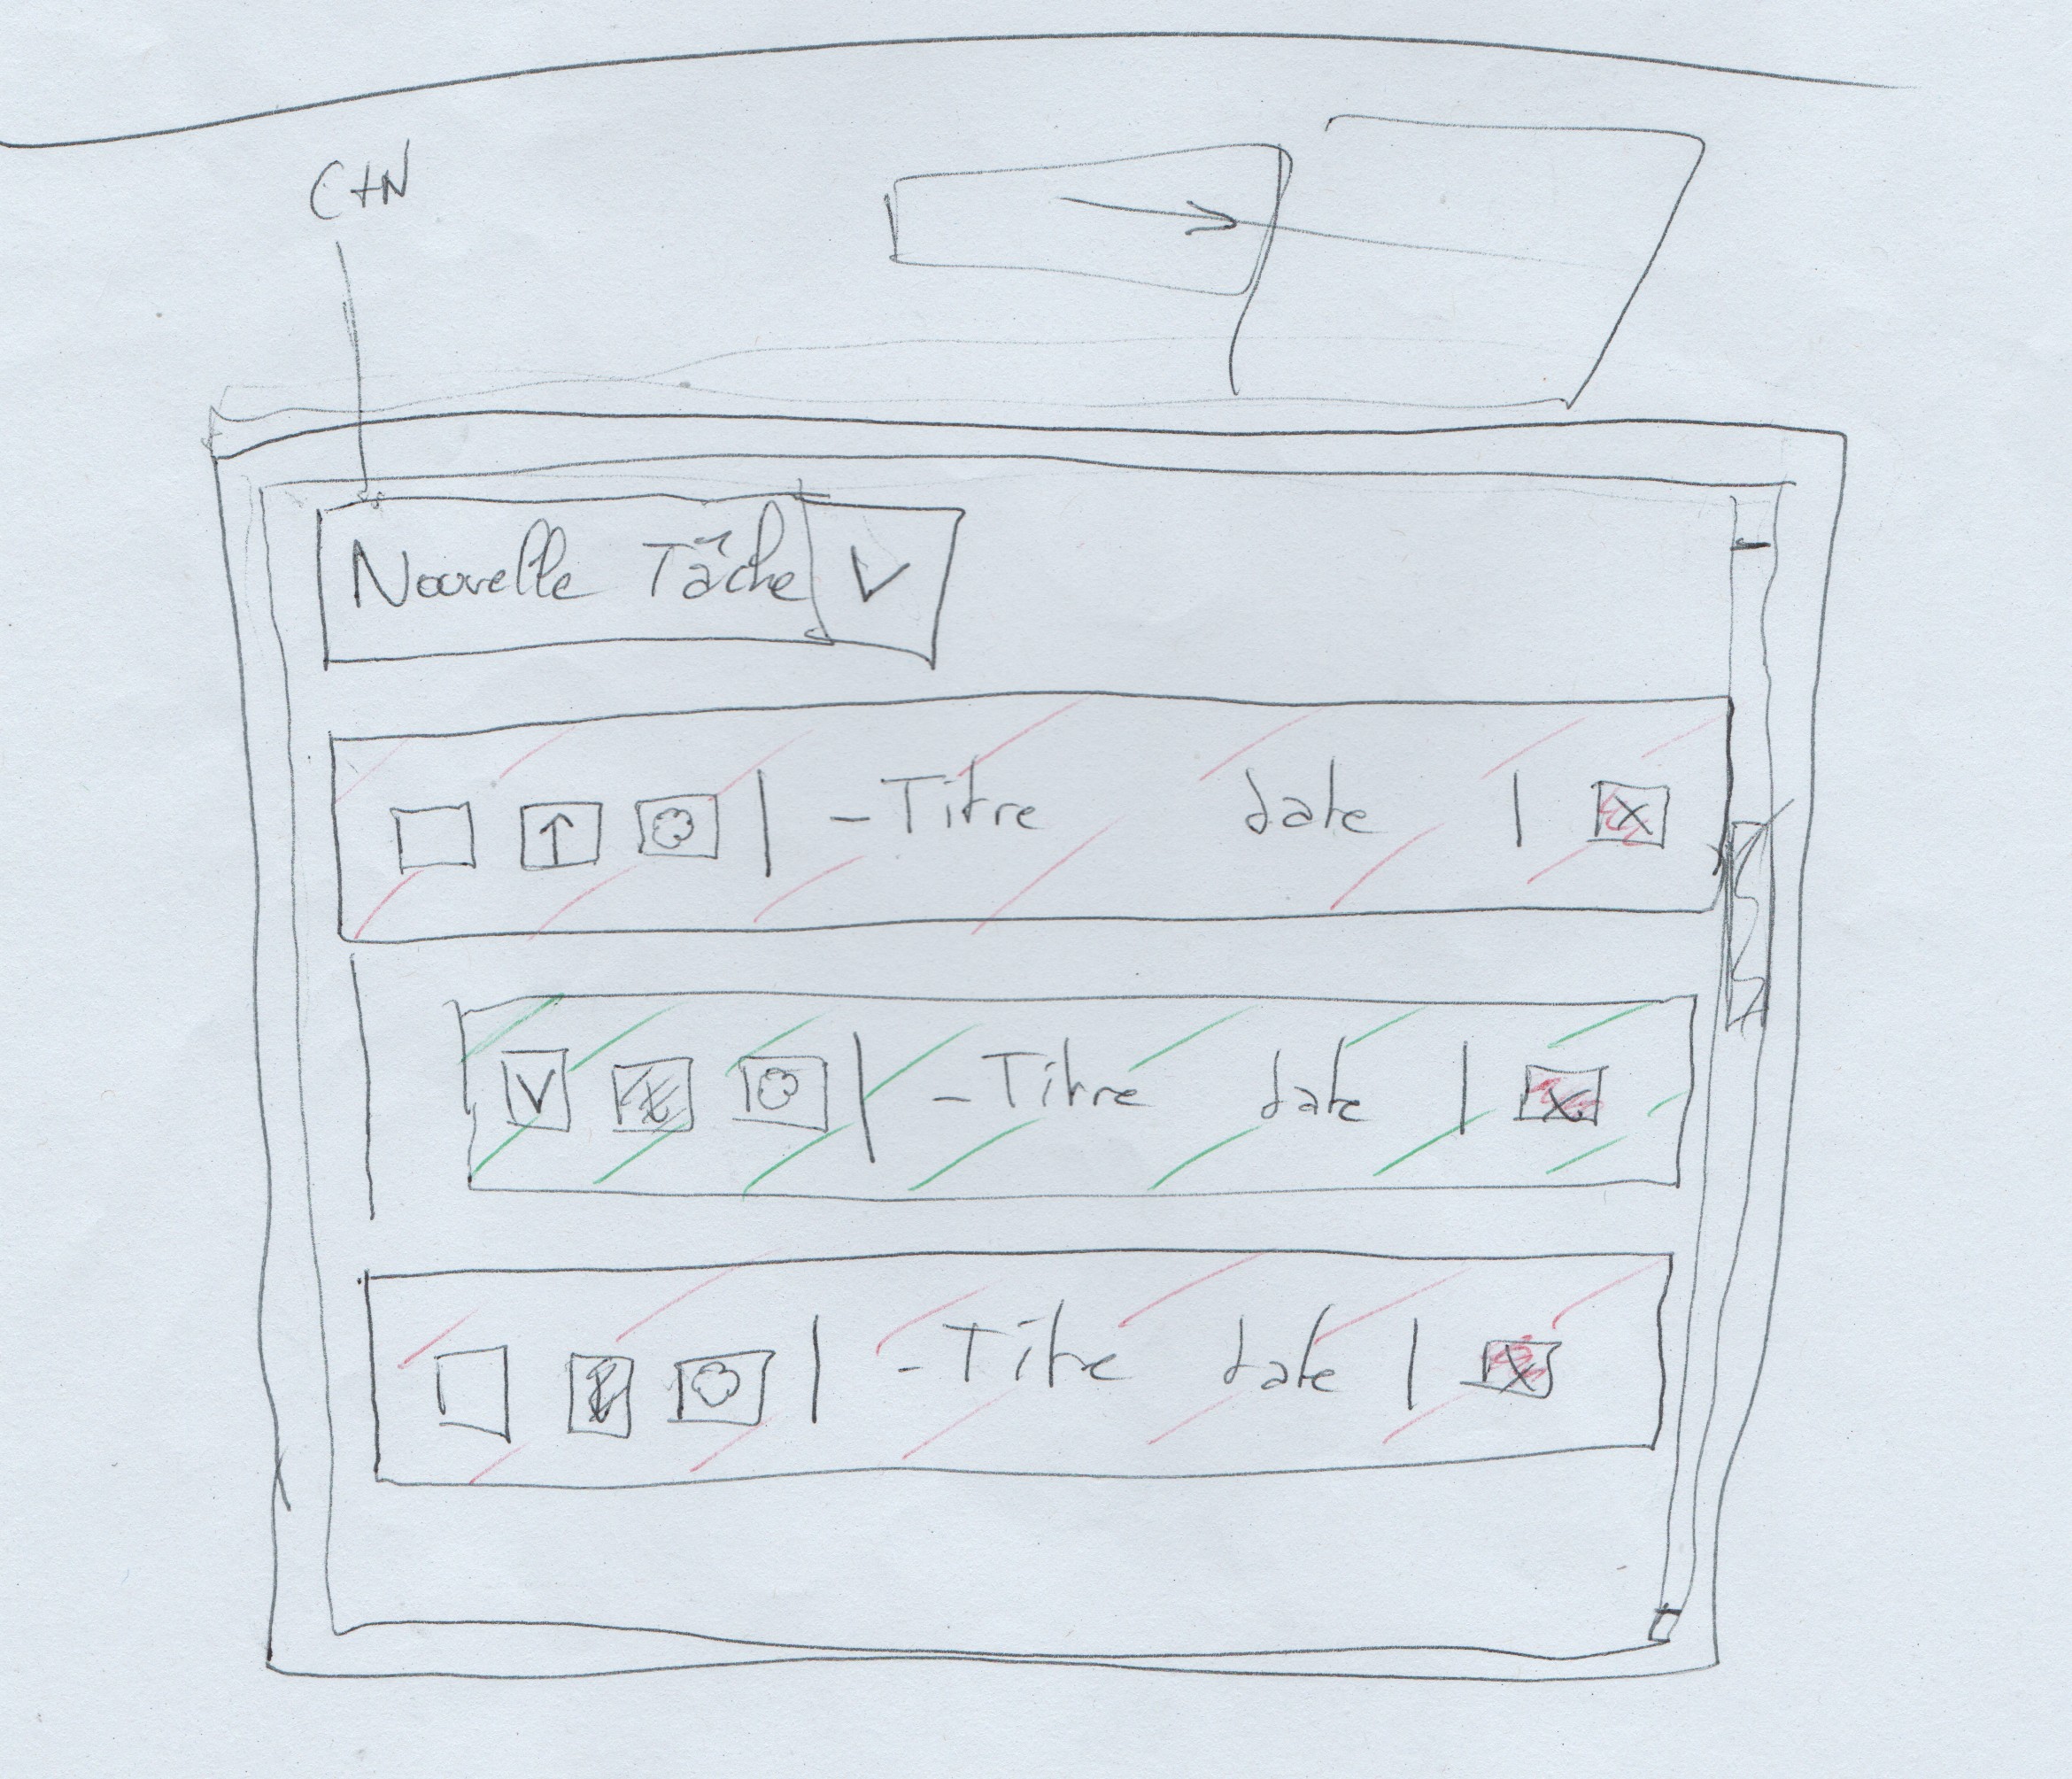 C+N
Nouvelle Tâche V
↑ | - Titre date | X
V | - Titre date | X
| - Titre date | X